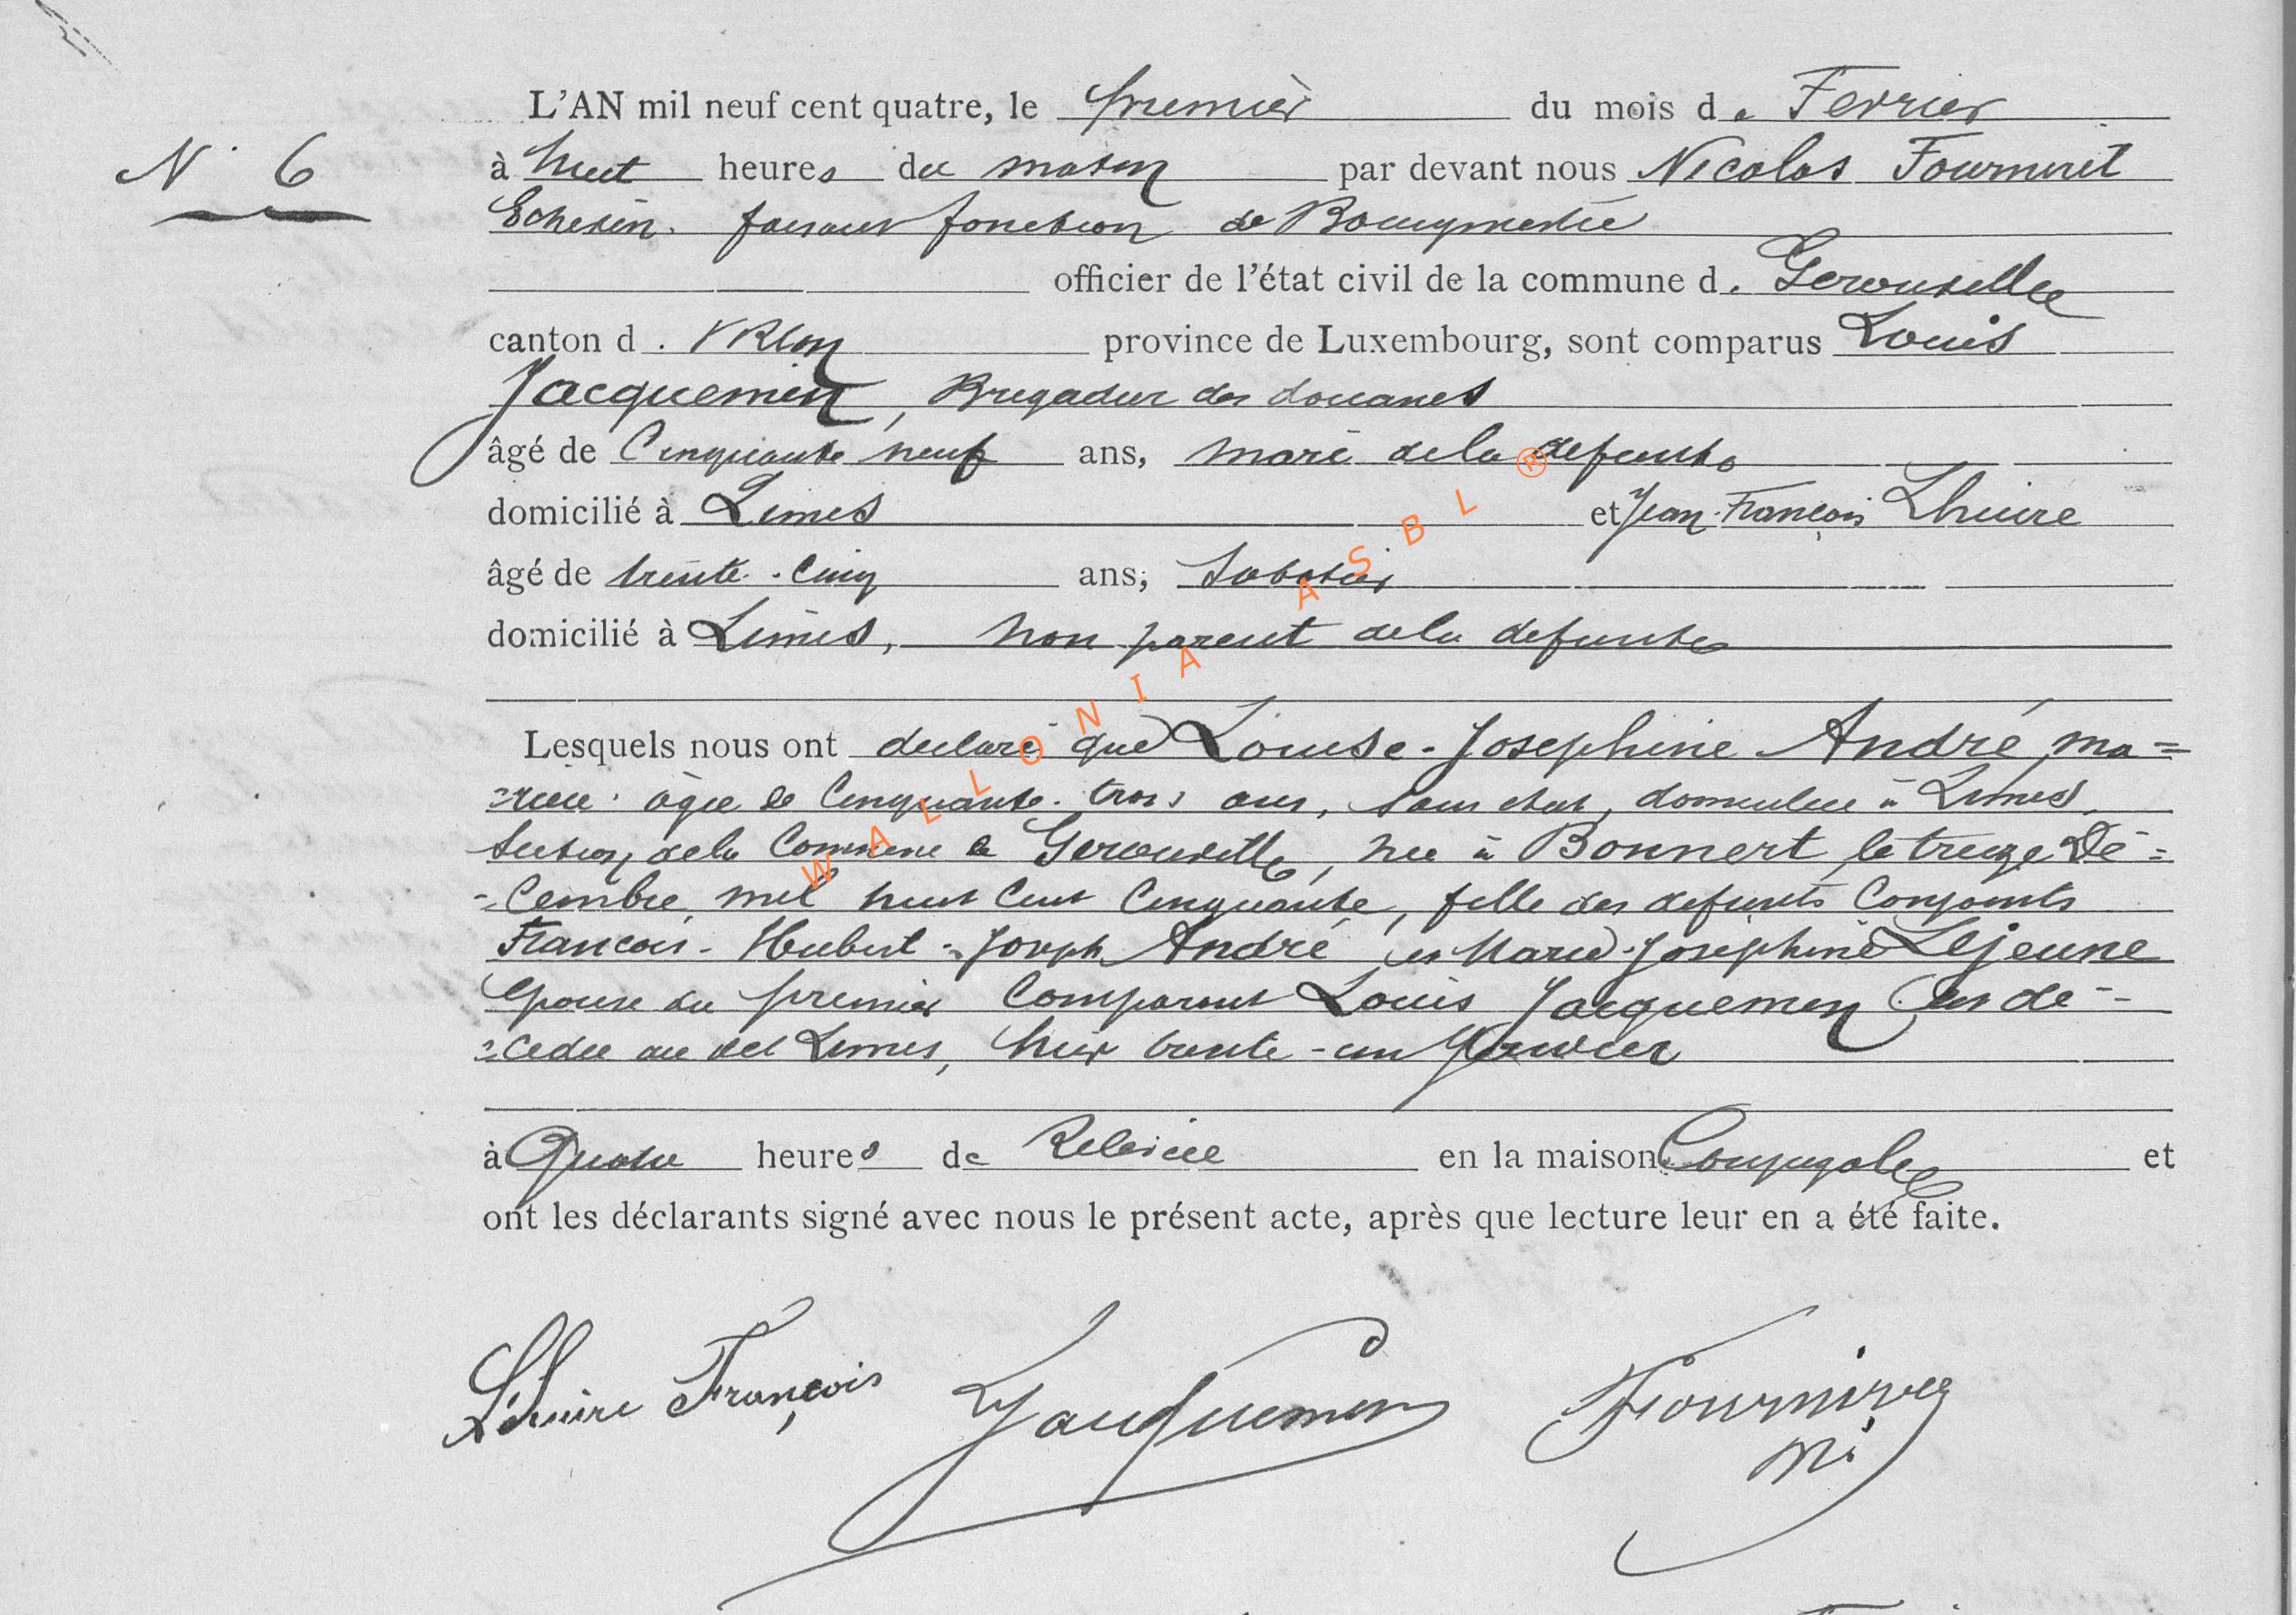 L'AN mil neuf cent quatre, le premier du mois de Fevrier
N° 6
à huit heures du matin par devant nous Nicolas Fourniret
Echevin faisant fonction de Bourgmestre
officier de l'état civil de la commune d. Gerouville
canton d. Virton province de Luxembourg, sont comparus Louis
Jacquemin, Brigadier des douanes
âgé de Cinquante neuf ans, mari de la defunte
domicilié à Limes et Jean-François Lhuire
âgé de trente-cinq ans, Sabotier
domicilié à Limes, non parent de la defunte
Lesquels nous ont declaré que Louise-Josephine André, ma=
=riée âgée de Cinquante-trois ans, sans etat, domiciliée à Limes,
Section de la Commune de Gerouville, née à Bonnert le treize Dé=
-Cembre mil huit Cent Cinquante, fille des defunts Conjoints
Francois-Hubert-Joseph André et Marie-Joséphine Lejeune
Epouse du premier Comparant Louis Jacquemin est dé-
=cedée au dit Limes, hier trente-un Janvier
à Quatre heures de Relevée en la maison Conjugale et
ont les déclarants signé avec nous le présent acte, après que lecture leur en a été faite.
Lhuire François Jacquemin Fourniret
Ni
WALLONIA ASBL ®